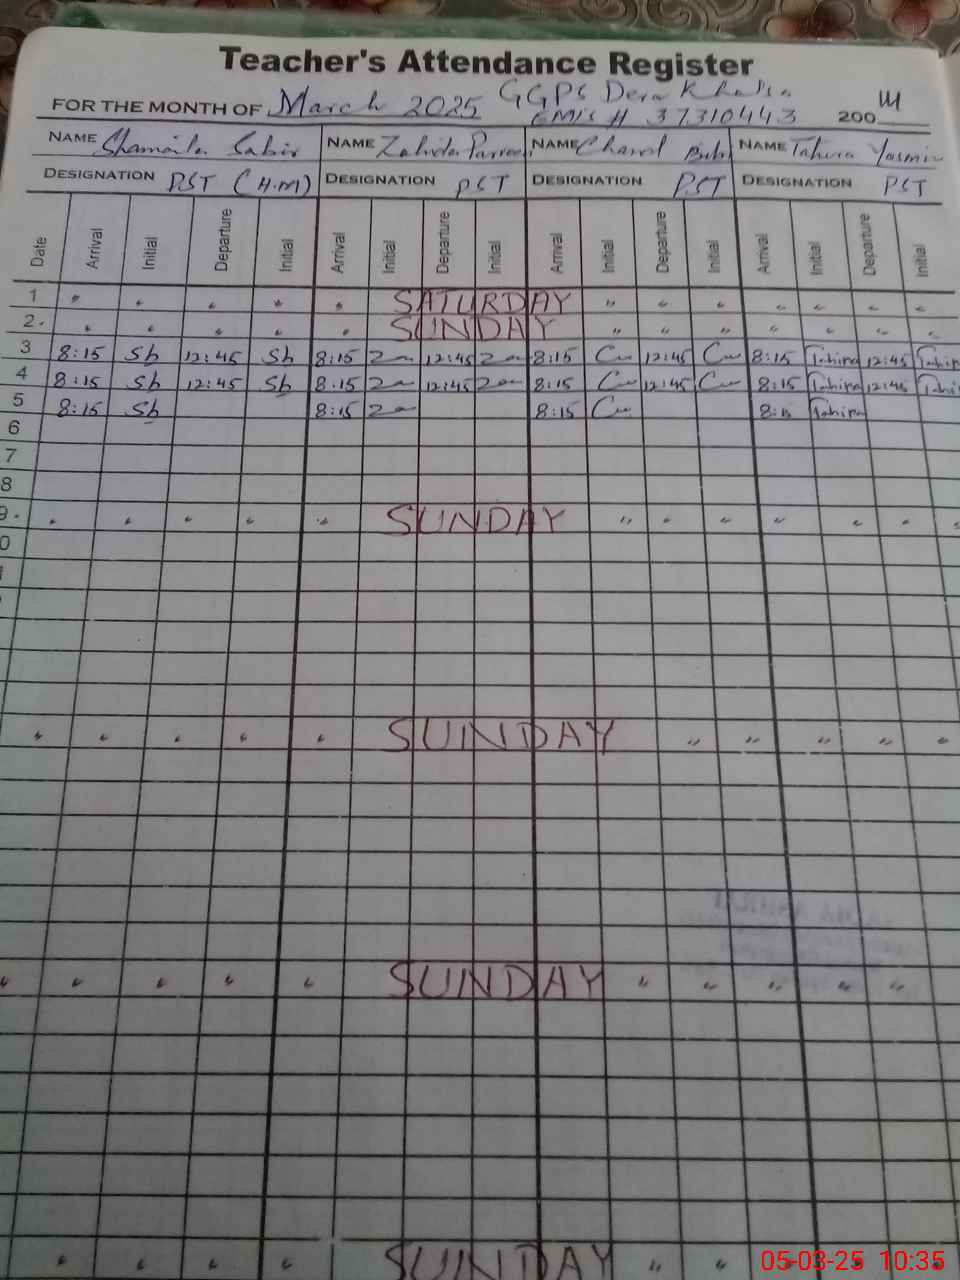 Teacher's Attendance Register
FOR THE MONTH OF March 2025 GGPS Dera Khalsa
EMIS # 37310443 200
NAME Shamaila Sabir NAME Zahida Parveen NAME Chand Bibi NAME Tahira Yasmin
DESIGNATION PST (H.M) DESIGNATION PST DESIGNATION PST DESIGNATION PST
Date Arrival Initial Departure Initial Arrival Initial Departure Initial Arrival Initial Departure Initial Arrival Initial Departure Initial
1 " " " " " SATURDAY " " " " " " "
2 " " " " " SUNDAY " " " " " " "
3 8:15 Sb 12:45 Sb 8:15 Za 12:45 Za 8:15 12:45 8:15 Tahira 12:45 Tahira
4 8:15 Sb 12:45 Sb 8:15 Za 12:45 Za 8:15 12:45 8:15 Tahira 12:45 Tahi
5 8:15 Sb 8:15 Za 8:15 8:15 Tahira
6
7
8
9 " " " " " SUNDAY " " " " " " "
0
" " " " " SUNDAY " " " " "
" " " " " SUNDAY " " " " "
" " " " SUNDAY " "
05-03-25 10:35